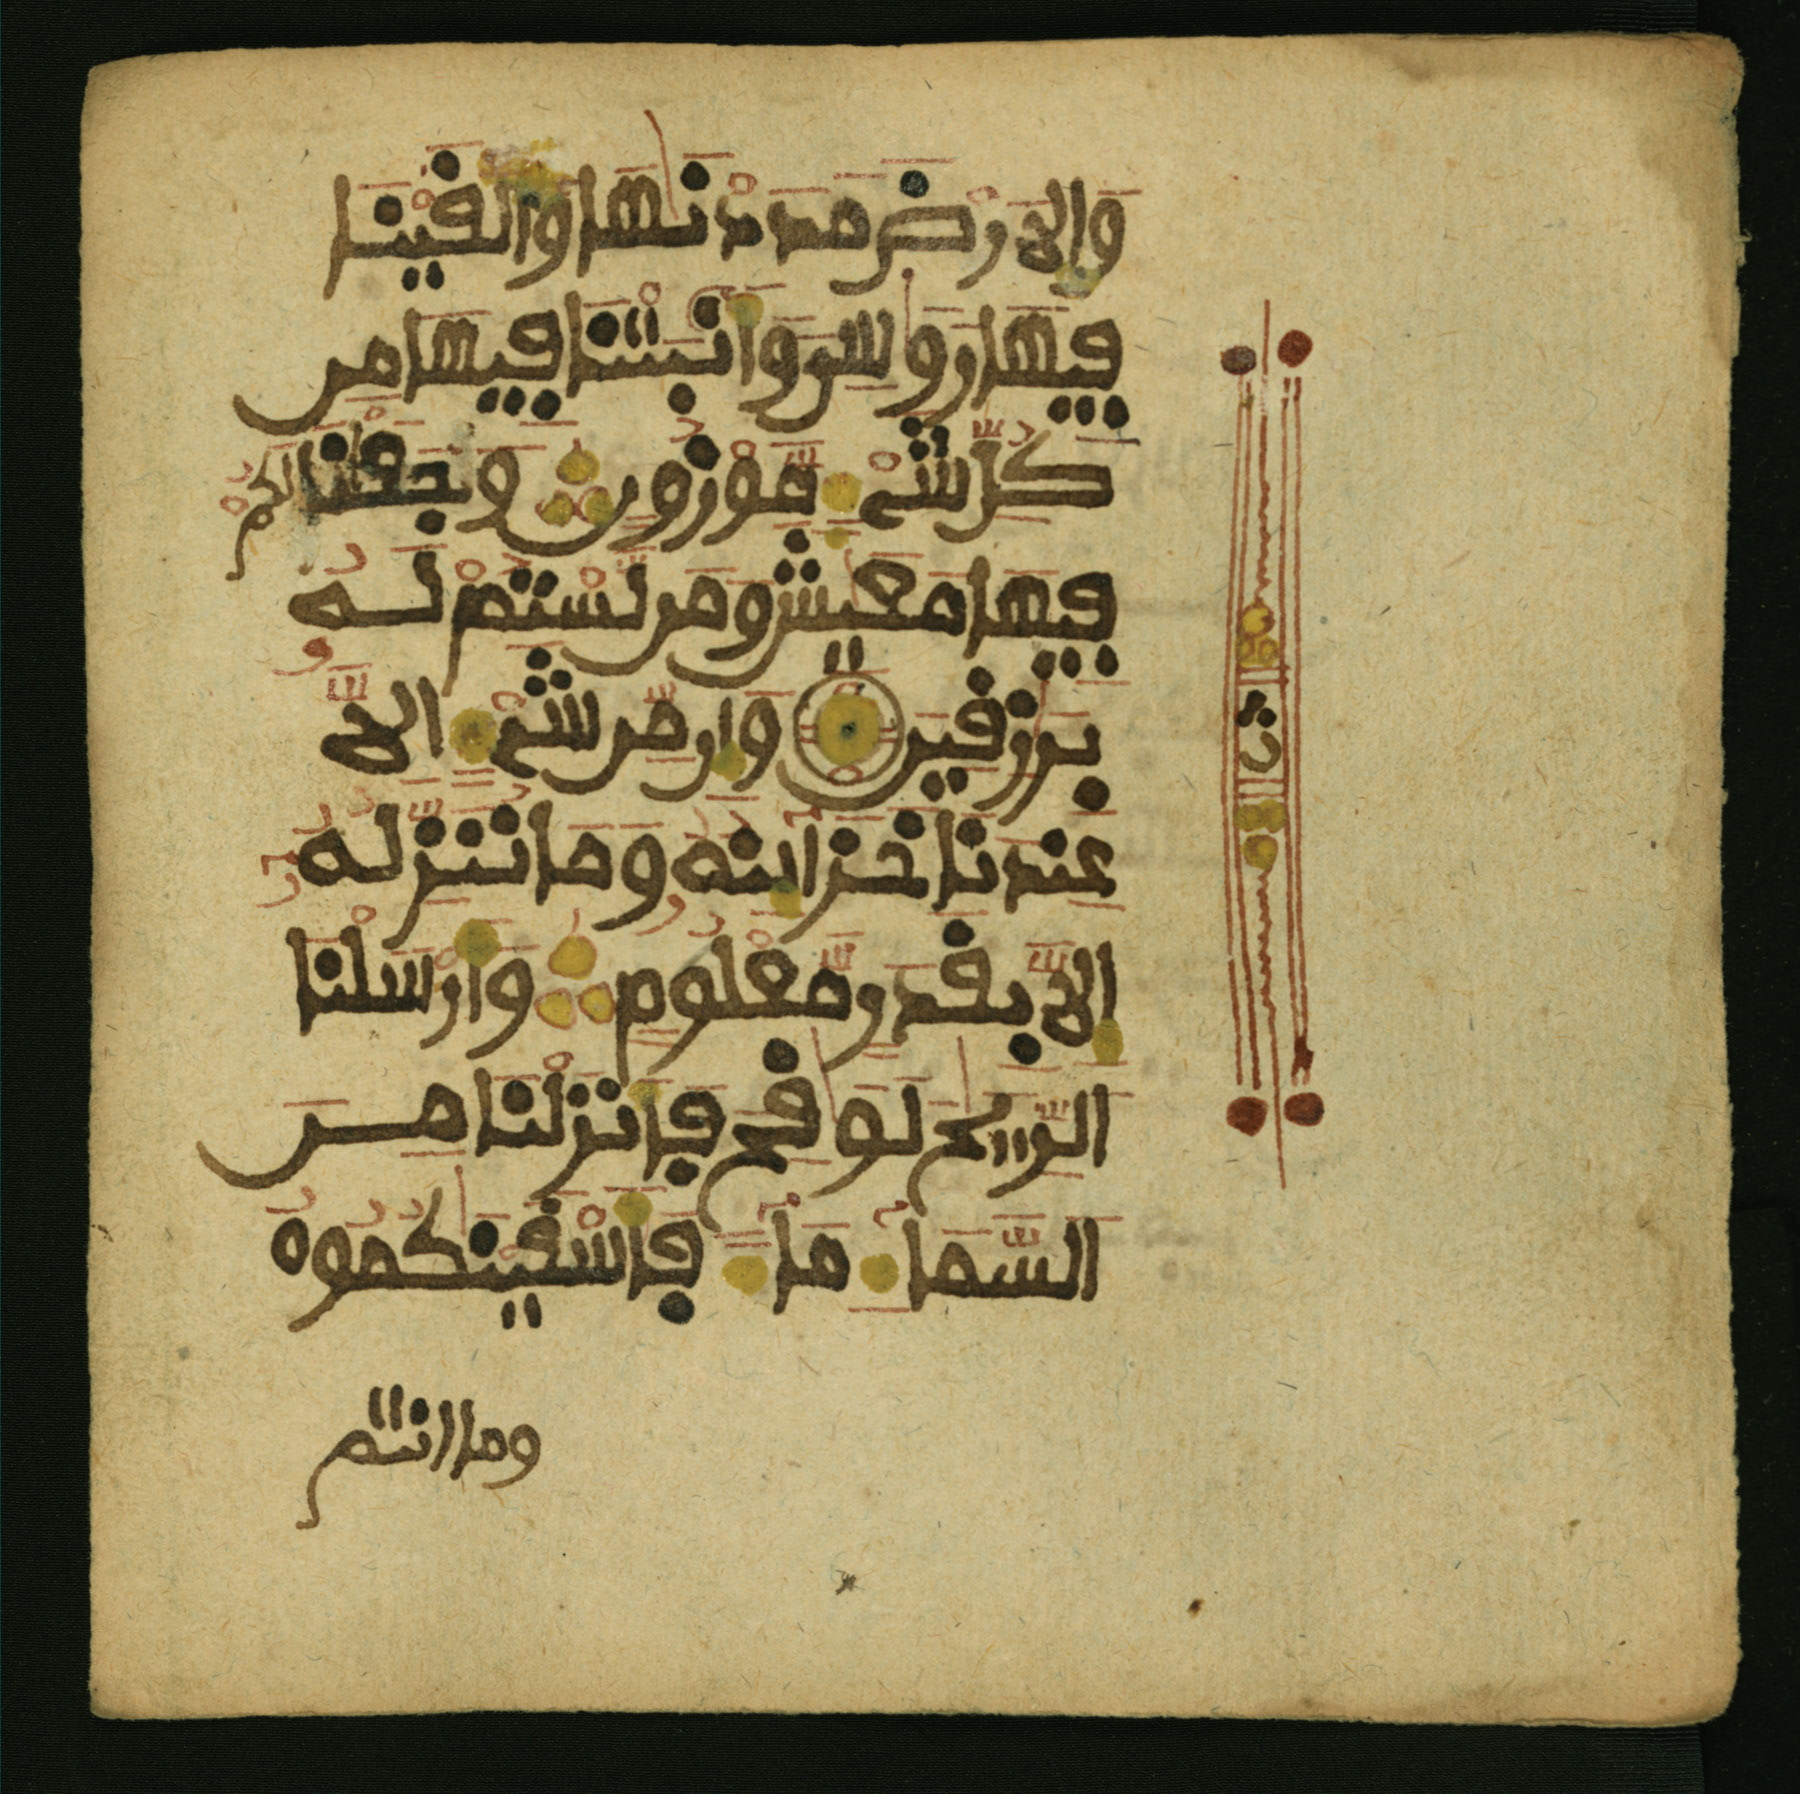 وَالَارْضَ مَدَدْنَٰهَا وَأَلْقَيْنَا
فِيهَا رَوَٰسِيَ وَأَنۢبَتْنَا فِيهَا مِن
كُلِّ شَيْءٍ مَّوْزُونٍ وَجَعَلْنَا لَكُمْ
فِيهَا مَعَٰيِشَ وَمَن لَّسْتُمْ لَهُۥ
بِرَٰزِقِينَ وَإِن مِّن شَيْءٍ اِلَّا
عِندَنَا خَزَآئِنُهُۥ وَمَا نُنَزِّلُهُۥٓ
إِلَّا بِقَدَرٍ مَّعْلُومٍ وَأَرْسَلْنَا
الرِّيَٰحَ لَوَٰقِحَ فَأَنزَلْنَا مِنَ
السَّمَآءِ مَآءً فَأَسْقَيْنَٰكُمُوهُ
وما انتم
ث